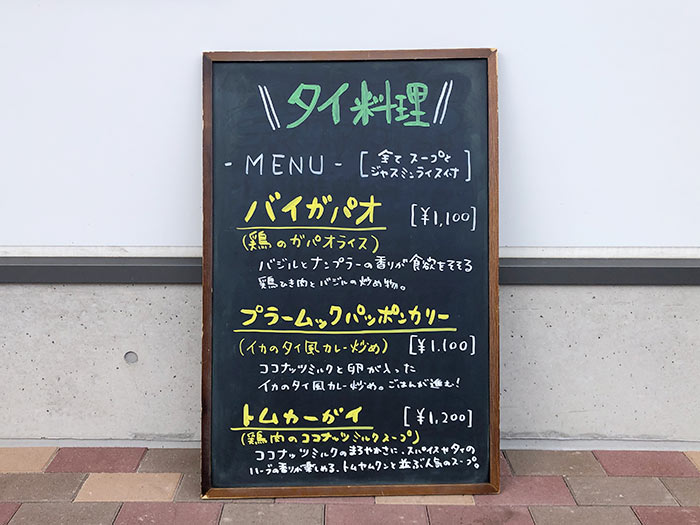 \\ タイ料理 //
- MENU -
[全て スープと
ジャスミンライス付]
バイガパオ [¥1,100]
(鶏のガパオライス)
バジルとナンプラーの香りが食欲をそそる
鶏ひき肉とバジルの炒め物。
プラームックパッポンカリー
(イカのタイ風カレー炒め) [¥1.100]
ココナッツミルクと卵が入った
イカのタイ風カレー炒め。ごはんが進む!
トムカーガイ [¥1,200]
(鶏肉のココナッツミルクスープ)
ココナッツミルクのまろやかさに、スパイスやタイの
ハーブの香りが楽しめる、トムヤムクンと並ぶ人気のスープ。